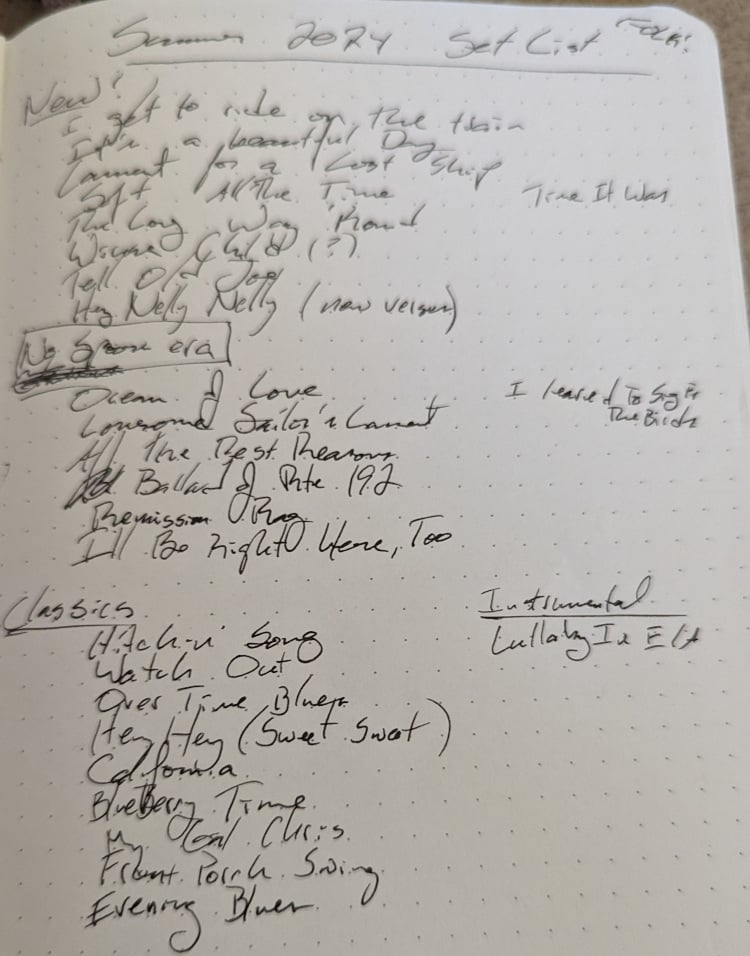 Summer 2024 Set List Folk!
New!
I get to ride on the train
It's a beautiful Day
Lament for a Lost Ship
All The Time
Time It Was
The Long Way 'Round
Child (?)
Tell Old Joe
Hey Nelly Nelly (new version)
No era
Ocean of Love
I learned To Sing Fr
The Birds
Lonesome Sailor's Lament
All The Best Reasons
Ballad of Rte 192
Remission Rag
I'll Be Right Here, Too
Classics
Instrumental
Hitch-n' Song
Lullaby In E/A
Watch Out
Over Time Blues
Hey Hey (Sweet Sweet)
California
BlueBerry Time
My Chris
Front Porch Swing
Evening Blues